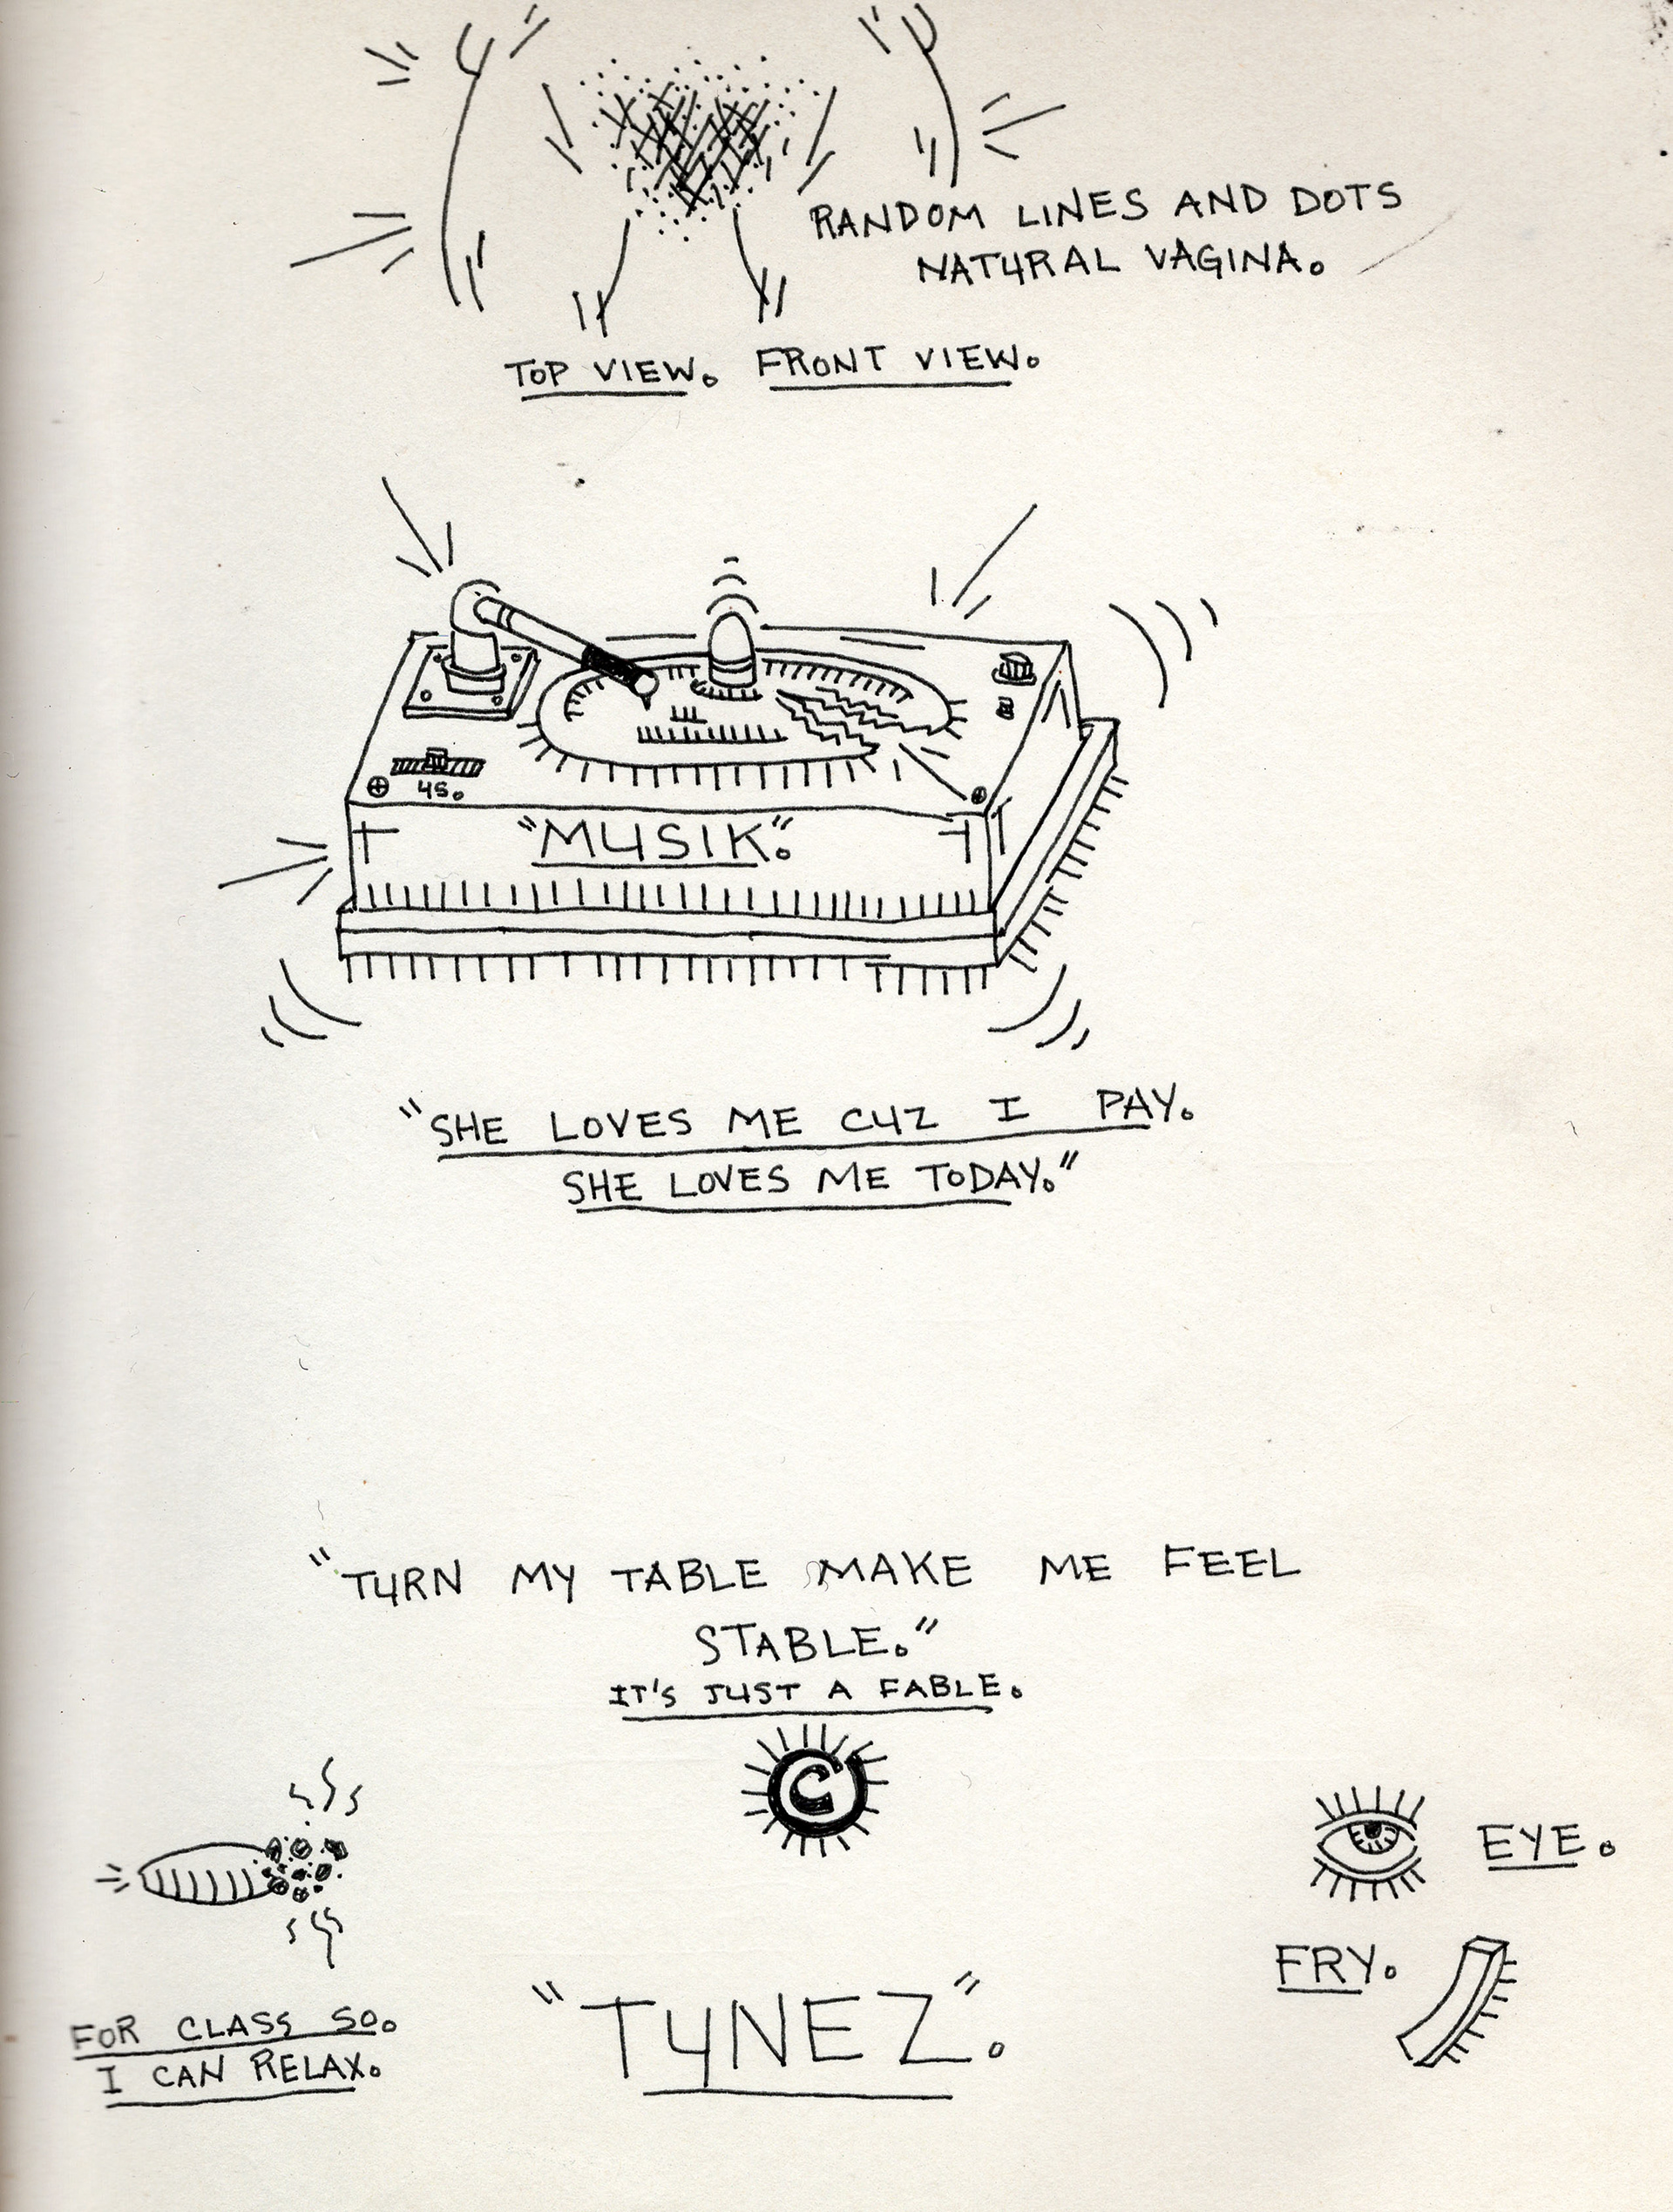 RANDOM LINES AND DOTS
NATURAL VAGINA.
TOP VIEW. FRONT VIEW.
45.
"MUSIK".
"SHE LOVES ME CUZ I PAY.
SHE LOVES ME TODAY."
"TURN MY TABLE MAKE ME FEEL
STABLE."
IT'S JUST A FABLE.
C
EYE.
FRY.
FOR CLASS SO.
I CAN RELAX.
"TUNEZ".